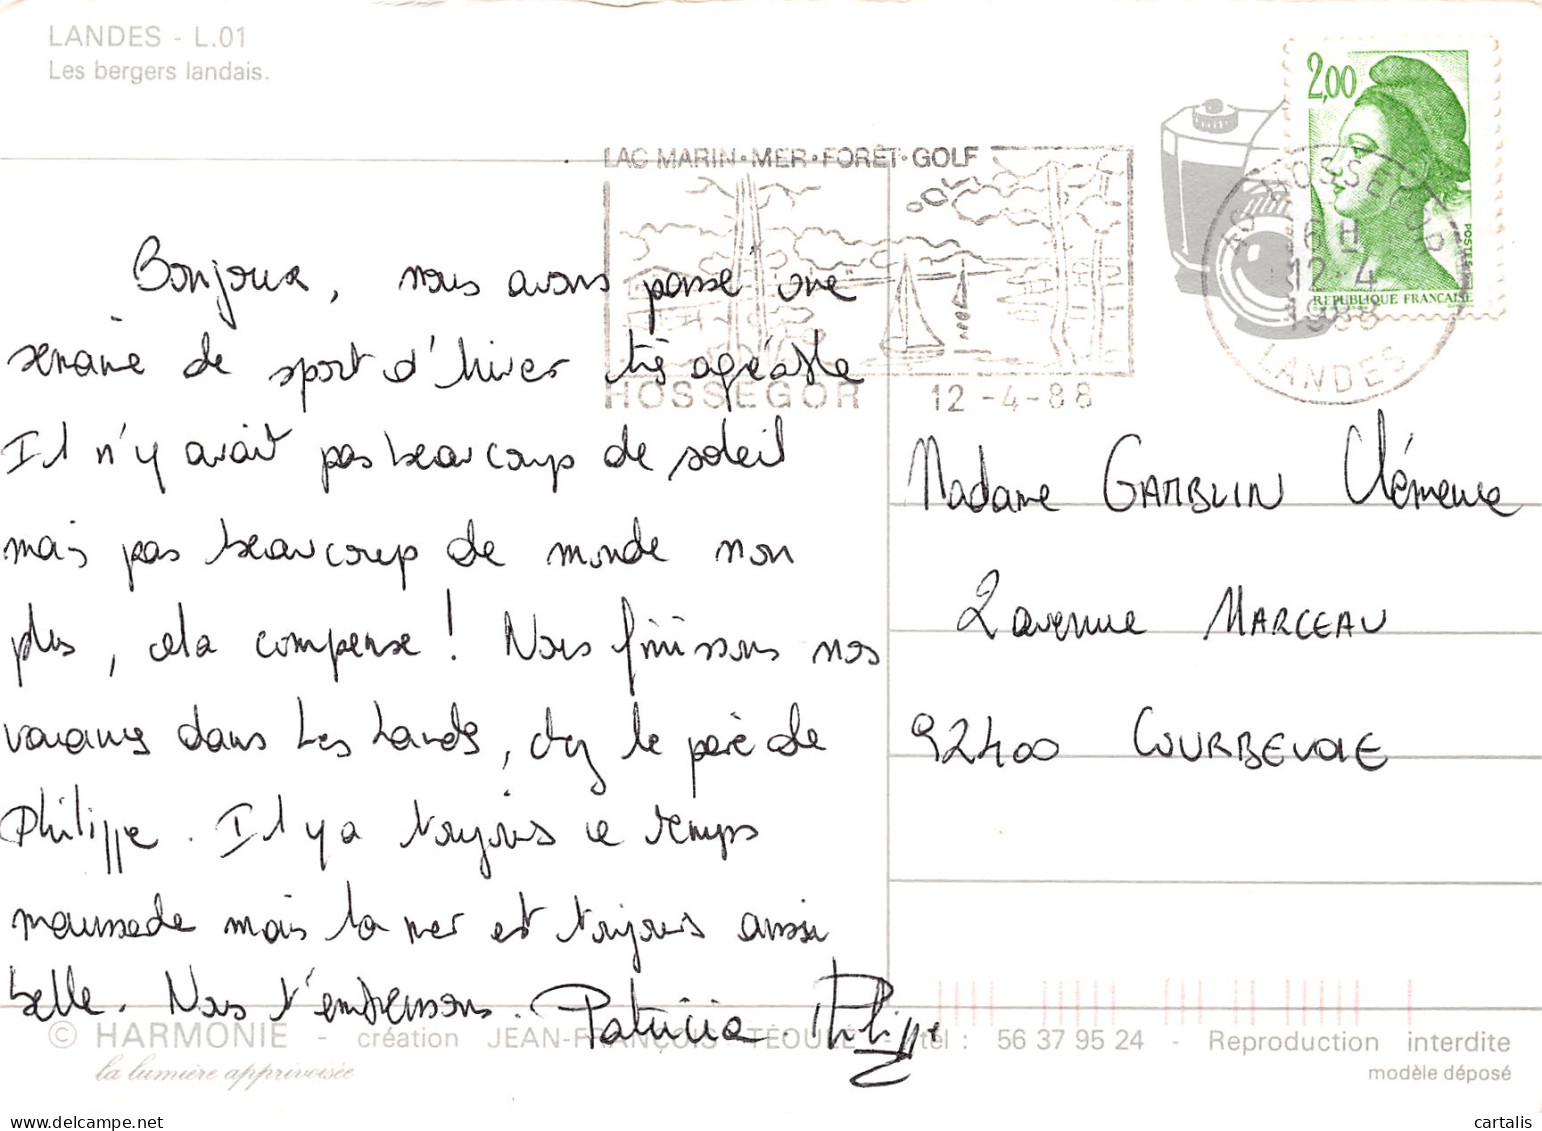 LANDES - L.01
Les bergers landais.
2,00
POSTES
REPUBLIQUE FRANÇAISE
LAC MARIN • MER • FORÊT • GOLF
HOSSEGOR 12 -4-88
40 HOSSEGOR
16 H
12-4
1988
LANDES
Bonjour, nous avons passé une
semaine de sport d'hiver très agréable
Il n'y avait pas beaucoup de soleil
mais pas beaucoup de monde non
plus, cela compense ! Nous finissons nos
vacances dans les Landes, chez le père de
Philippe. Il y a toujours ce temps
maussade mais la mer est toujours aussi
belle. Nous t'embrassons. Patricia. Philippe
Madame GAMBLIN Clémence
2 avenue MARCEAU
92400 COURBEVOIE
© HARMONIE - création JEAN-FRANÇOIS TÉOULÉ - tél : 56 37 95 24 - Reproduction interdite
la lumière apprivoisée
modèle déposé
cartalis